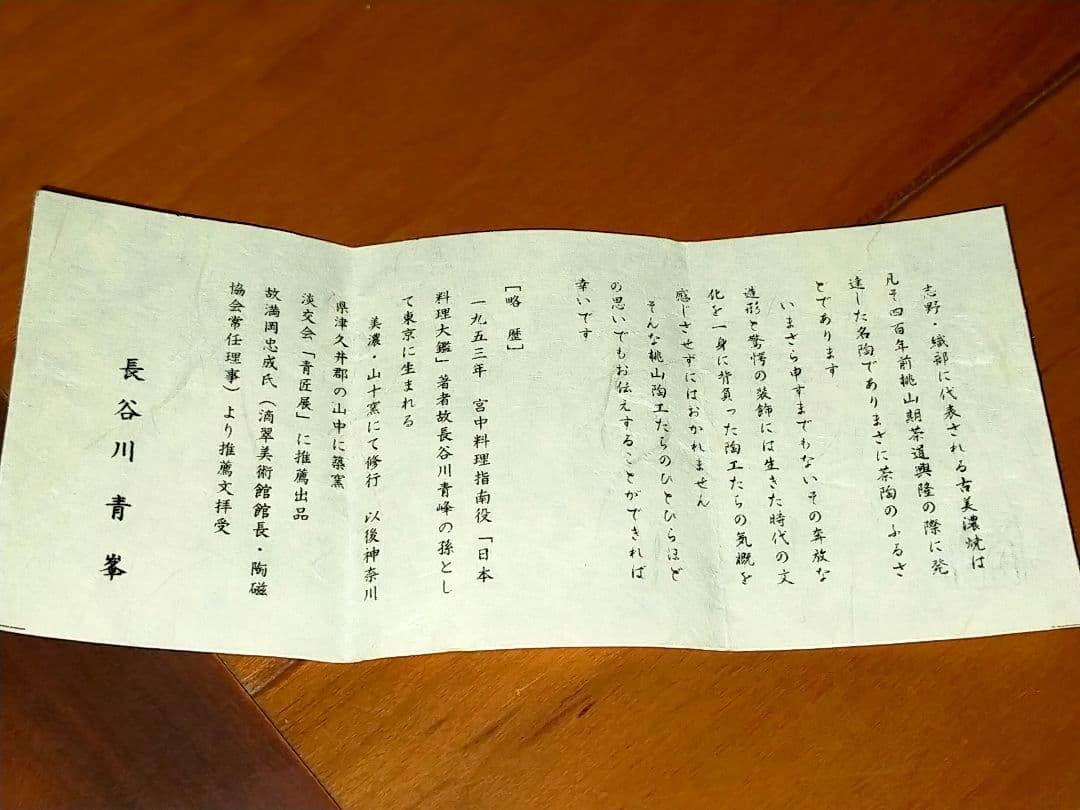 志野・織部に代表される古美濃焼は
凡そ四百年前桃山期茶道興隆の際に発
達した名陶でありまさに茶陶のふるさ
とであります
いまさら申すまでもないその奔放な
造形と驚愕の装飾には生きた時代の文
化を一身に背負った陶工たちの気概を
感じさせずにはおかれません
そんな桃山陶工たちのひとひらほど
の思いでもお伝えすることができれば
幸いです
[略 歴]
一九五三年 宮中料理指南役「日本
料理大鑑」著者故長谷川青峰の孫とし
て東京に生まれる
美濃・山十窯にて修行 以後神奈川
県津久井郡の山中に築窯
淡交会「青匠展」に推薦出品
故満岡忠成氏(滴翠美術館館長・陶磁
協会常任理事)より推薦文拝受
長谷川青峯